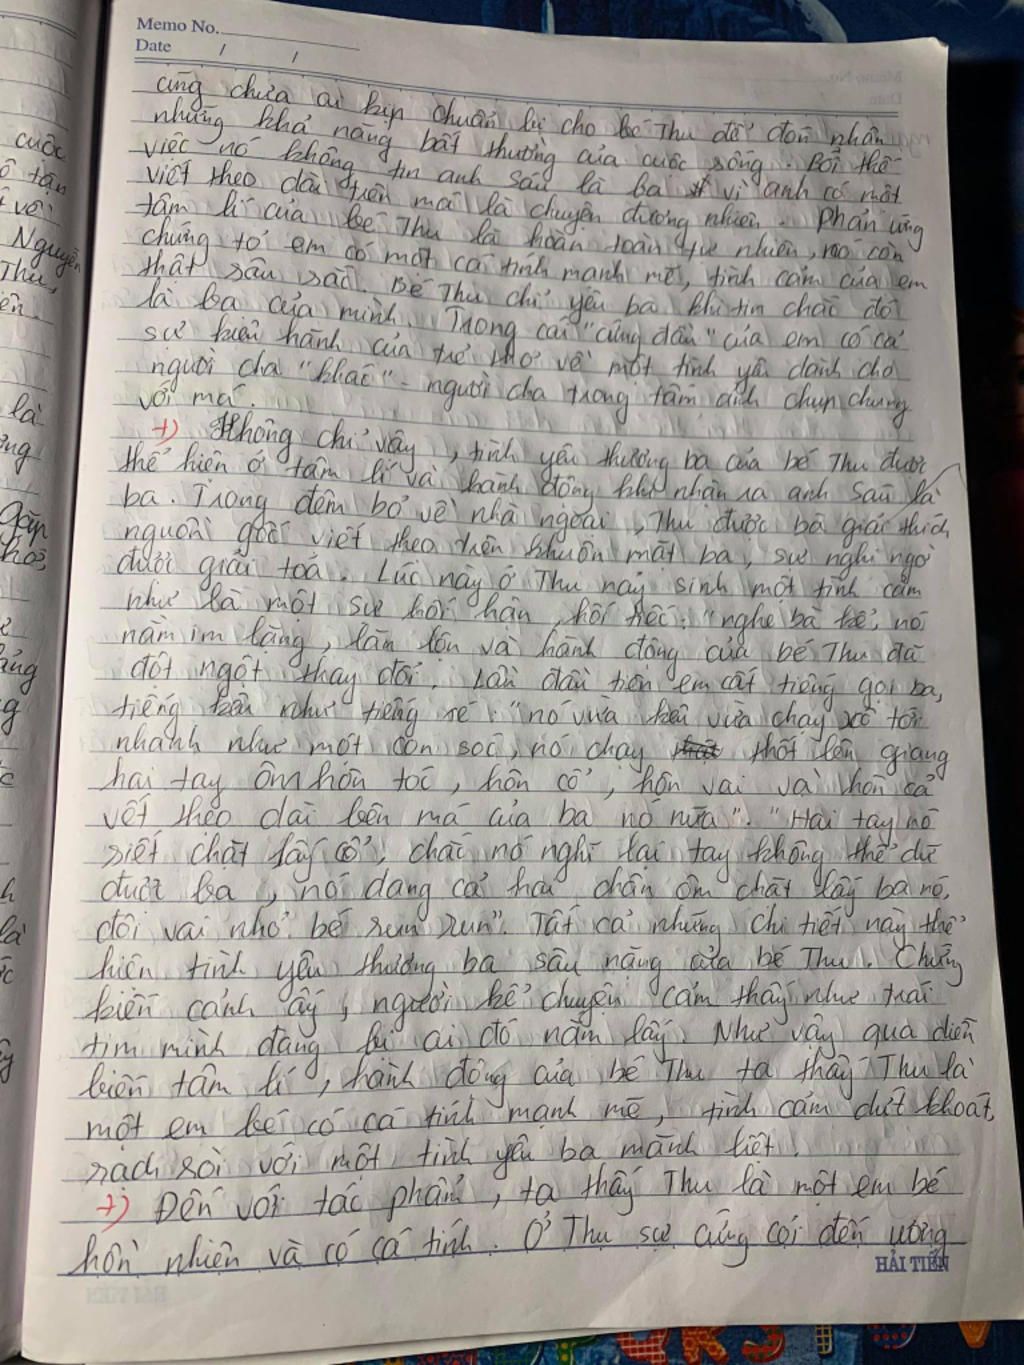 Memo No.
Date / /
cũng chưa ai kịp chuẩn bị cho bé Thu để đón nhận
những khả năng bất thường của cuộc sống. Bởi thế
việc nó không tin anh Sáu là ba vì anh có một
viết theo dài trên má là chuyện đương nhiên. Phản ứng
tâm lí của bé Thu là hoàn toàn tự nhiên, nó còn
chứng tỏ em có một cá tính mạnh mẽ, tình cảm của em
thật sâu sắc. Bé Thu chỉ yêu ba khi tin chắc đó
là ba của mình. Trong cái "cứng đầu" của em có cả
sự kiêu hãnh của trẻ thơ về một tình yêu dành cho
người cha "khác" - người cha trong tấm ảnh chụp chung
với má.
+) Không chỉ vậy, tình yêu thương ba của bé Thu được
thể hiện ở tâm lí và hành động khi nhận ra anh Sáu là
ba. Trong đêm bỏ về nhà ngoại, Thu được bà giải thích
nguồn gốc viết theo trên khuôn mặt ba, sự nghi ngờ
được giải toả. Lúc này ở Thu nảy sinh một tình cảm
như là một sự hối hận, hối tiếc: "nghe bà kể, nó
nằm im lặng, lăn lộn và hành động của bé Thu đã
đột ngột thay đổi. Lần đầu tiên em cất tiếng gọi ba,
tiếng kêu như tiếng xé: "nó vừa kêu vừa chạy xô tới
nhanh như một con sóc, nó chạy thót lên giang
hai tay ôm hôn tóc, hôn cổ, hôn vai và hôn cả
vết thẹo dài bên má của ba nó nữa". "Hai tay nó
siết chặt lấy cổ, chắc nó nghĩ lại tay không thể dữ
được ba, nó dang cả hai chân ôm chặt lấy ba nó,
đôi vai nhỏ bé run run". Tất cả những chi tiết này thể
hiện tình yêu thương ba sâu nặng của bé Thu. Chứng
kiến cảnh ấy, người kể chuyện cảm thấy như trái
tim mình đang bị ai đó nắm lấy. Như vậy qua diễn
biến tâm lí, hành động của bé Thu ta thấy Thu là
một em bé có cá tính mạnh mẽ, tình cảm dứt khoát,
rạch ròi với một tình yêu ba mãnh liệt.
+) Đến với tác phẩm, ta thấy Thu là một em bé
hồn nhiên và có cá tính. Ở Thu sự cứng cỏi đến ương
HẢI TIẾN